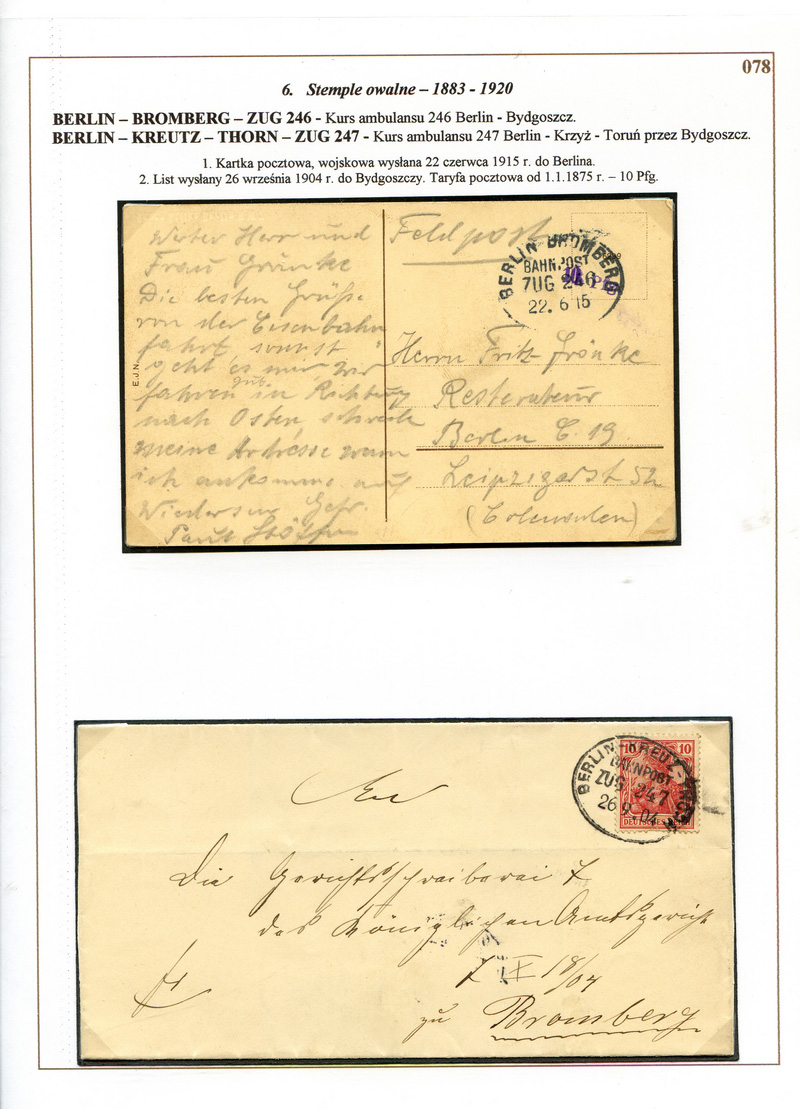 078
6. Stemple owalne – 1883 - 1920
BERLIN – BROMBERG – ZUG 246 - Kurs ambulansu 246 Berlin - Bydgoszcz.
BERLIN – KREUTZ – THORN – ZUG 247 - Kurs ambulansu 247 Berlin - Krzyż - Toruń przez Bydgoszcz.
1. Kartka pocztowa, wojskowa wysłana 22 czerwca 1915 r. do Berlina.
2. List wysłany 26 września 1904 r. do Bydgoszczy. Taryfa pocztowa od 1.1.1875 r. – 10 Pfg.
Werter Herr und
Frau Grönke
Die besten Grüße
von der Eisenbahn
fahrt sonst
geht es mir gut wir
fahren in Richtung
nach Osten, schreibe
meine Adresse wenn
ich ankomme auf
Wiedersen Gefr.
Paul
E.J.N.
Feldpost
BERLIN BROMBERG
BAHNPOST
ZUG 246
22. 6 15
Herrn Fritz Grönke
Resterateur
Berlin C. 19
Leipzigerst 52
BERLIN-KREUZ-THORN
BAHNPOST
ZUG 247
26.9.04
10 10
DEUTSCHES REICH
An
Die Gerichtsschreiberei 7
des Königlichen Amtsgericht
7 X 18/04
zu Bromberg